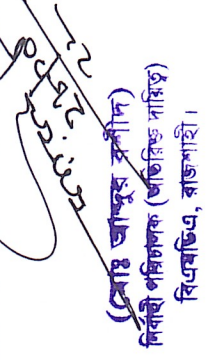 (মোঃ আব্দুর রশীদ)
নির্বাহী পরিচালক (অতিরিক্ত দায়িত্ব)
বিএমডিএ, রাজশাহী।